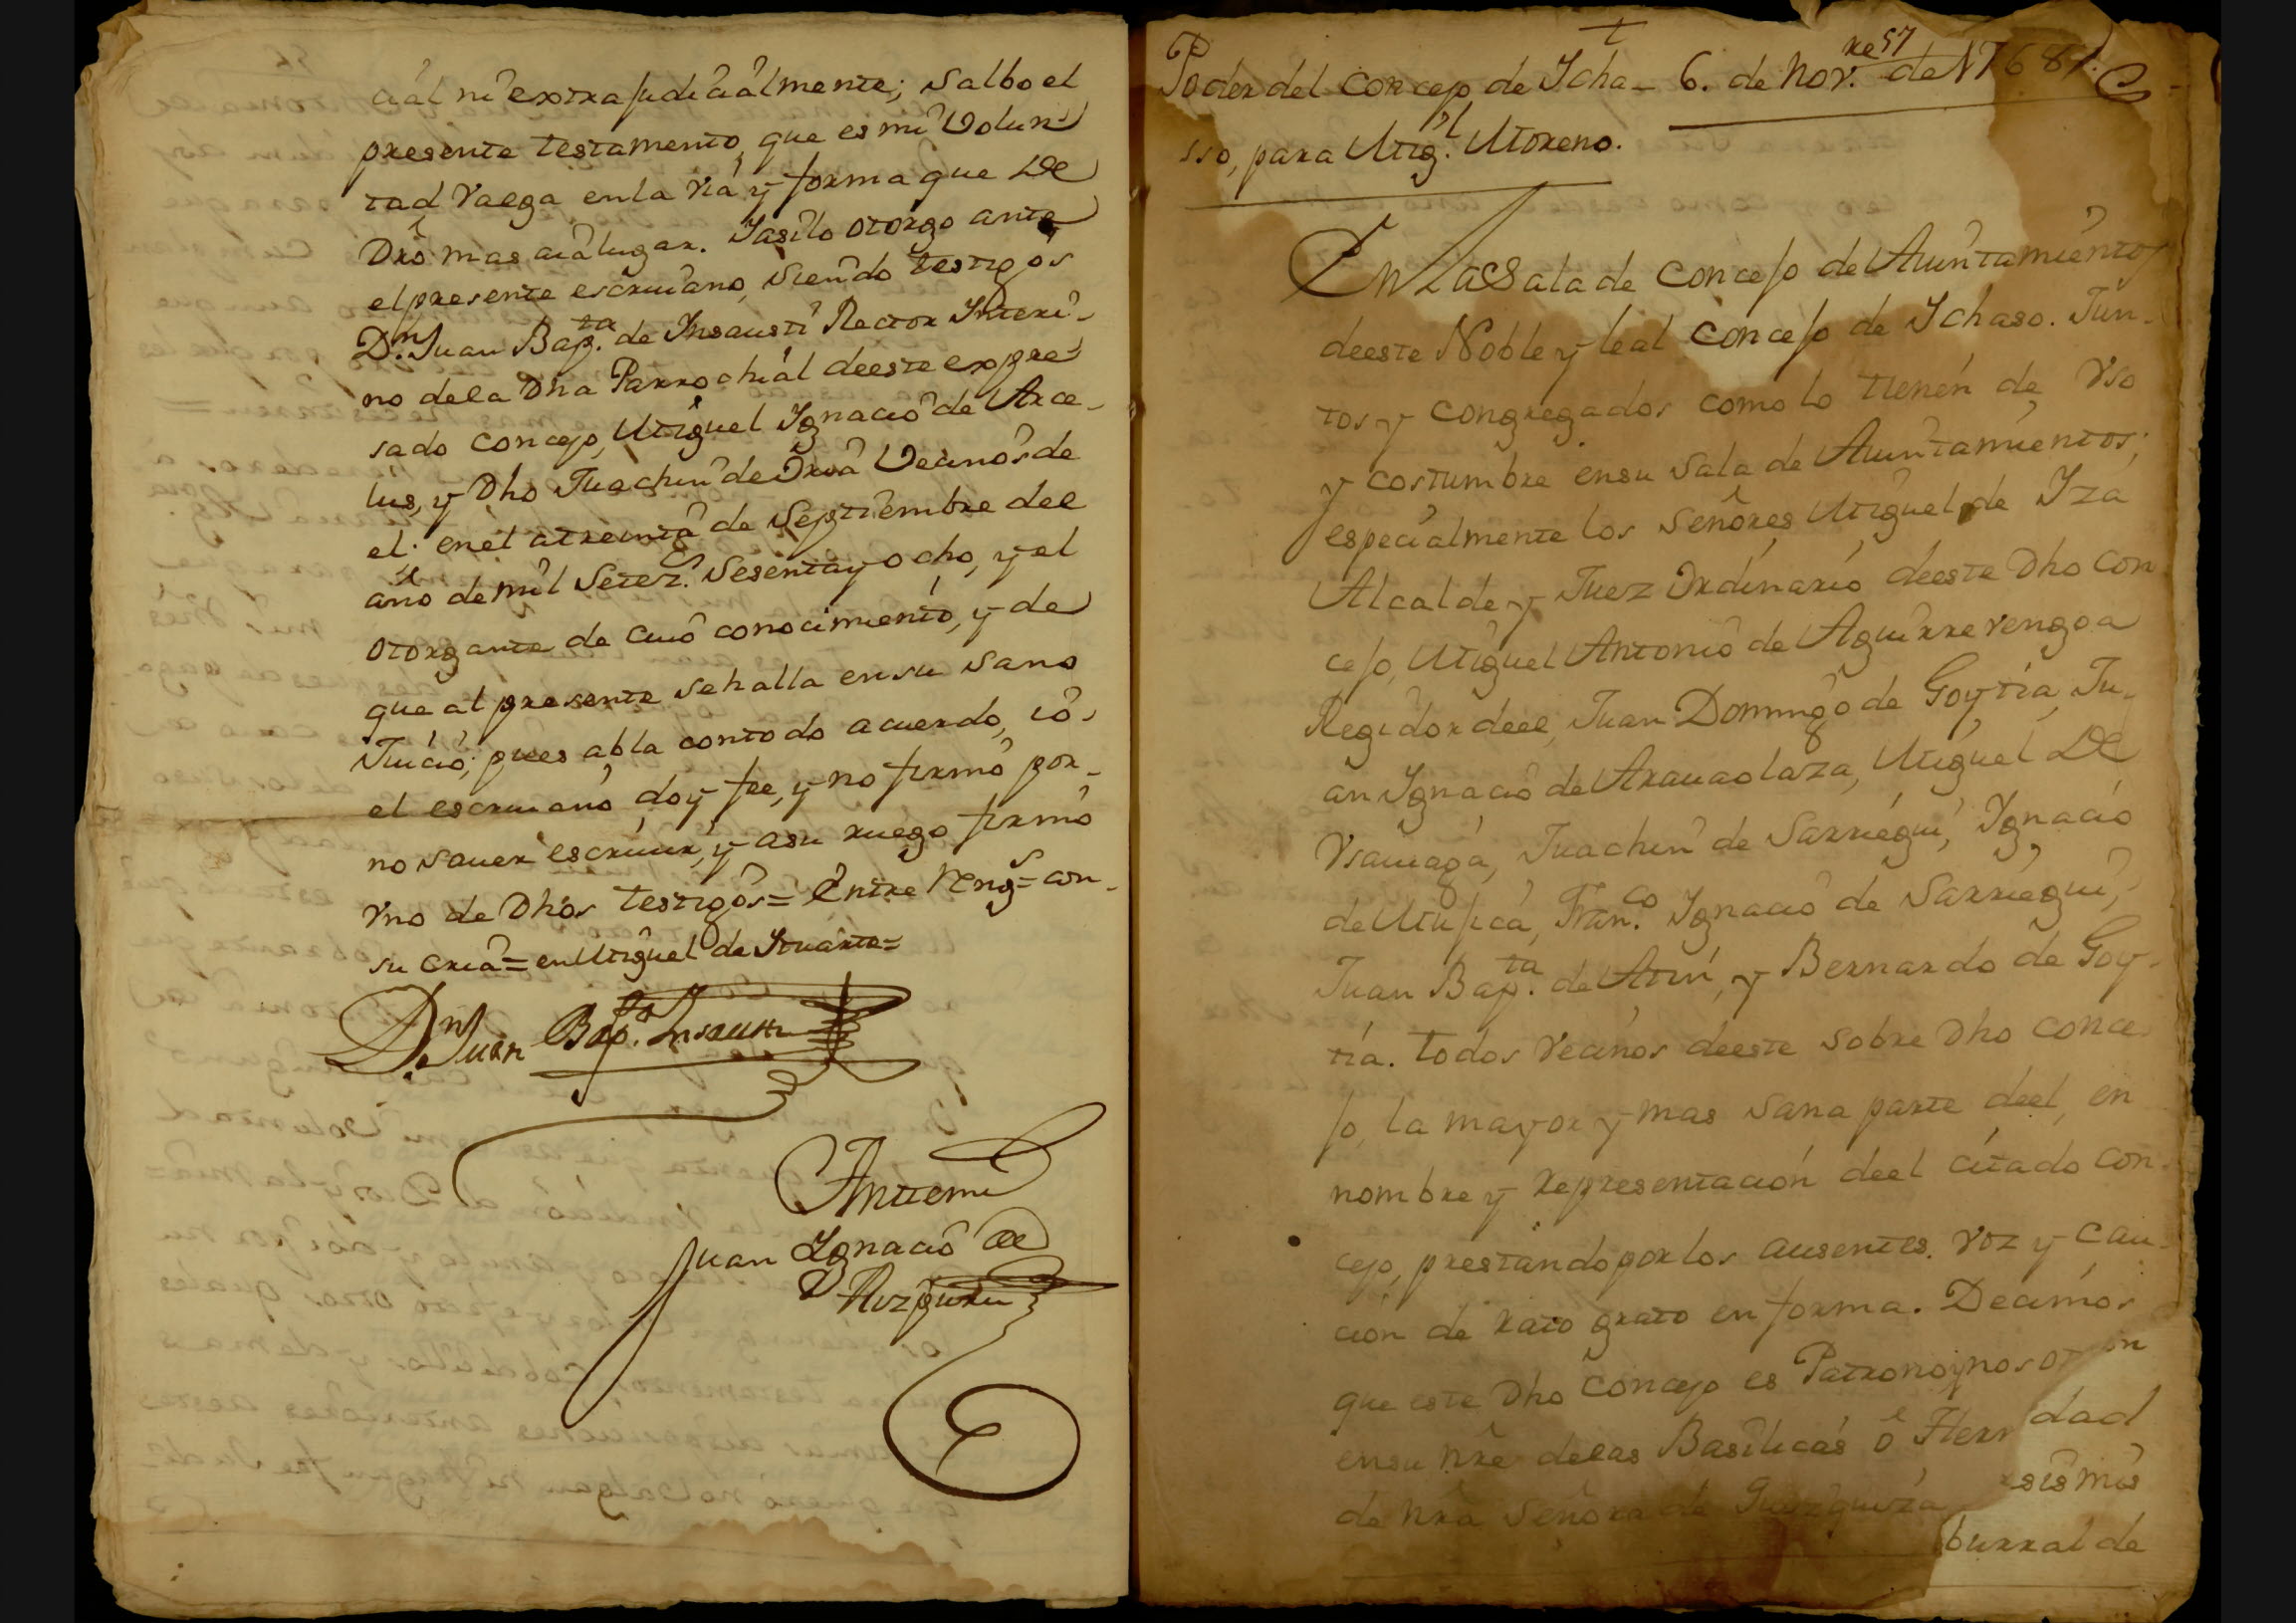 cial ni extrajudicialmente; salbo el
presente testamento, que es mi volun
tad valga en la via y forma que de
dro mas aia lugar. Y asi lo otorgo ante
el presente escrivano, siendo testigos
Dn. Juan Bapta. de Insausti Rector Interi-
no de la dha Parrochial de este expre-
sado concejo, Miguel Ignacio de Arce-
lus, y dho Juachin de Oria vecinos de
el. en el a treinta de Septiembre del
año de mil Setezs. Sesenta y ocho, y el
otorgante de cuio conocimiento, y de
que al presente se halla en su sano
Juicio; pues abla con todo acuerdo, io
el escrivano doy fee, y no firmó por-
no saver escrivir, y a su ruego firmó
vno de dhos testigos = Entre rengs = con-
su cria = en Miguel de Iriarte =
Dn. Juan Bapta. Insausti
Antemi
Juan Ignacio de
Aizpuru
57
Poder del concejo de Icha- 6. de Novre. de 1768.
sso, para Migl. Moreno.
En La Sala de concejo de Aiuntamiento
de este Noble y leal concejo de Ichaso. Jun-
tos y congregados como lo tienen de vso
y costumbre en su sala de Aiuntamientos;
especialmente los señores Miguel de Iza
Alcalde y Juez Ordinario de este dho con
cejo, Miguel Antonio de Aguirrevengoa
Regidor de el, Juan Domingo de Goytia, Ju-
an Ignacio de Aramaolaza, Miguel de
Vsaviaga, Juachin de Sarriegui, Ignacio
de Mujica, Franco. Ignacio de Sarriegui,
Juan Bapta. de Atin, y Bernardo de Goy-
tia. todos vecinos de este sobre dho conce
jo, la mayor y mas sana parte de el, en
nombre y representacion de el citado con-
cejo, prestando por los ausentes. voz y cau-
cion de rato grato en forma. Decimos
que este dho concejo es Patrono, y nosot
en su nre de las Basilicas o Her dad
de nra Señora de sismo
burral de